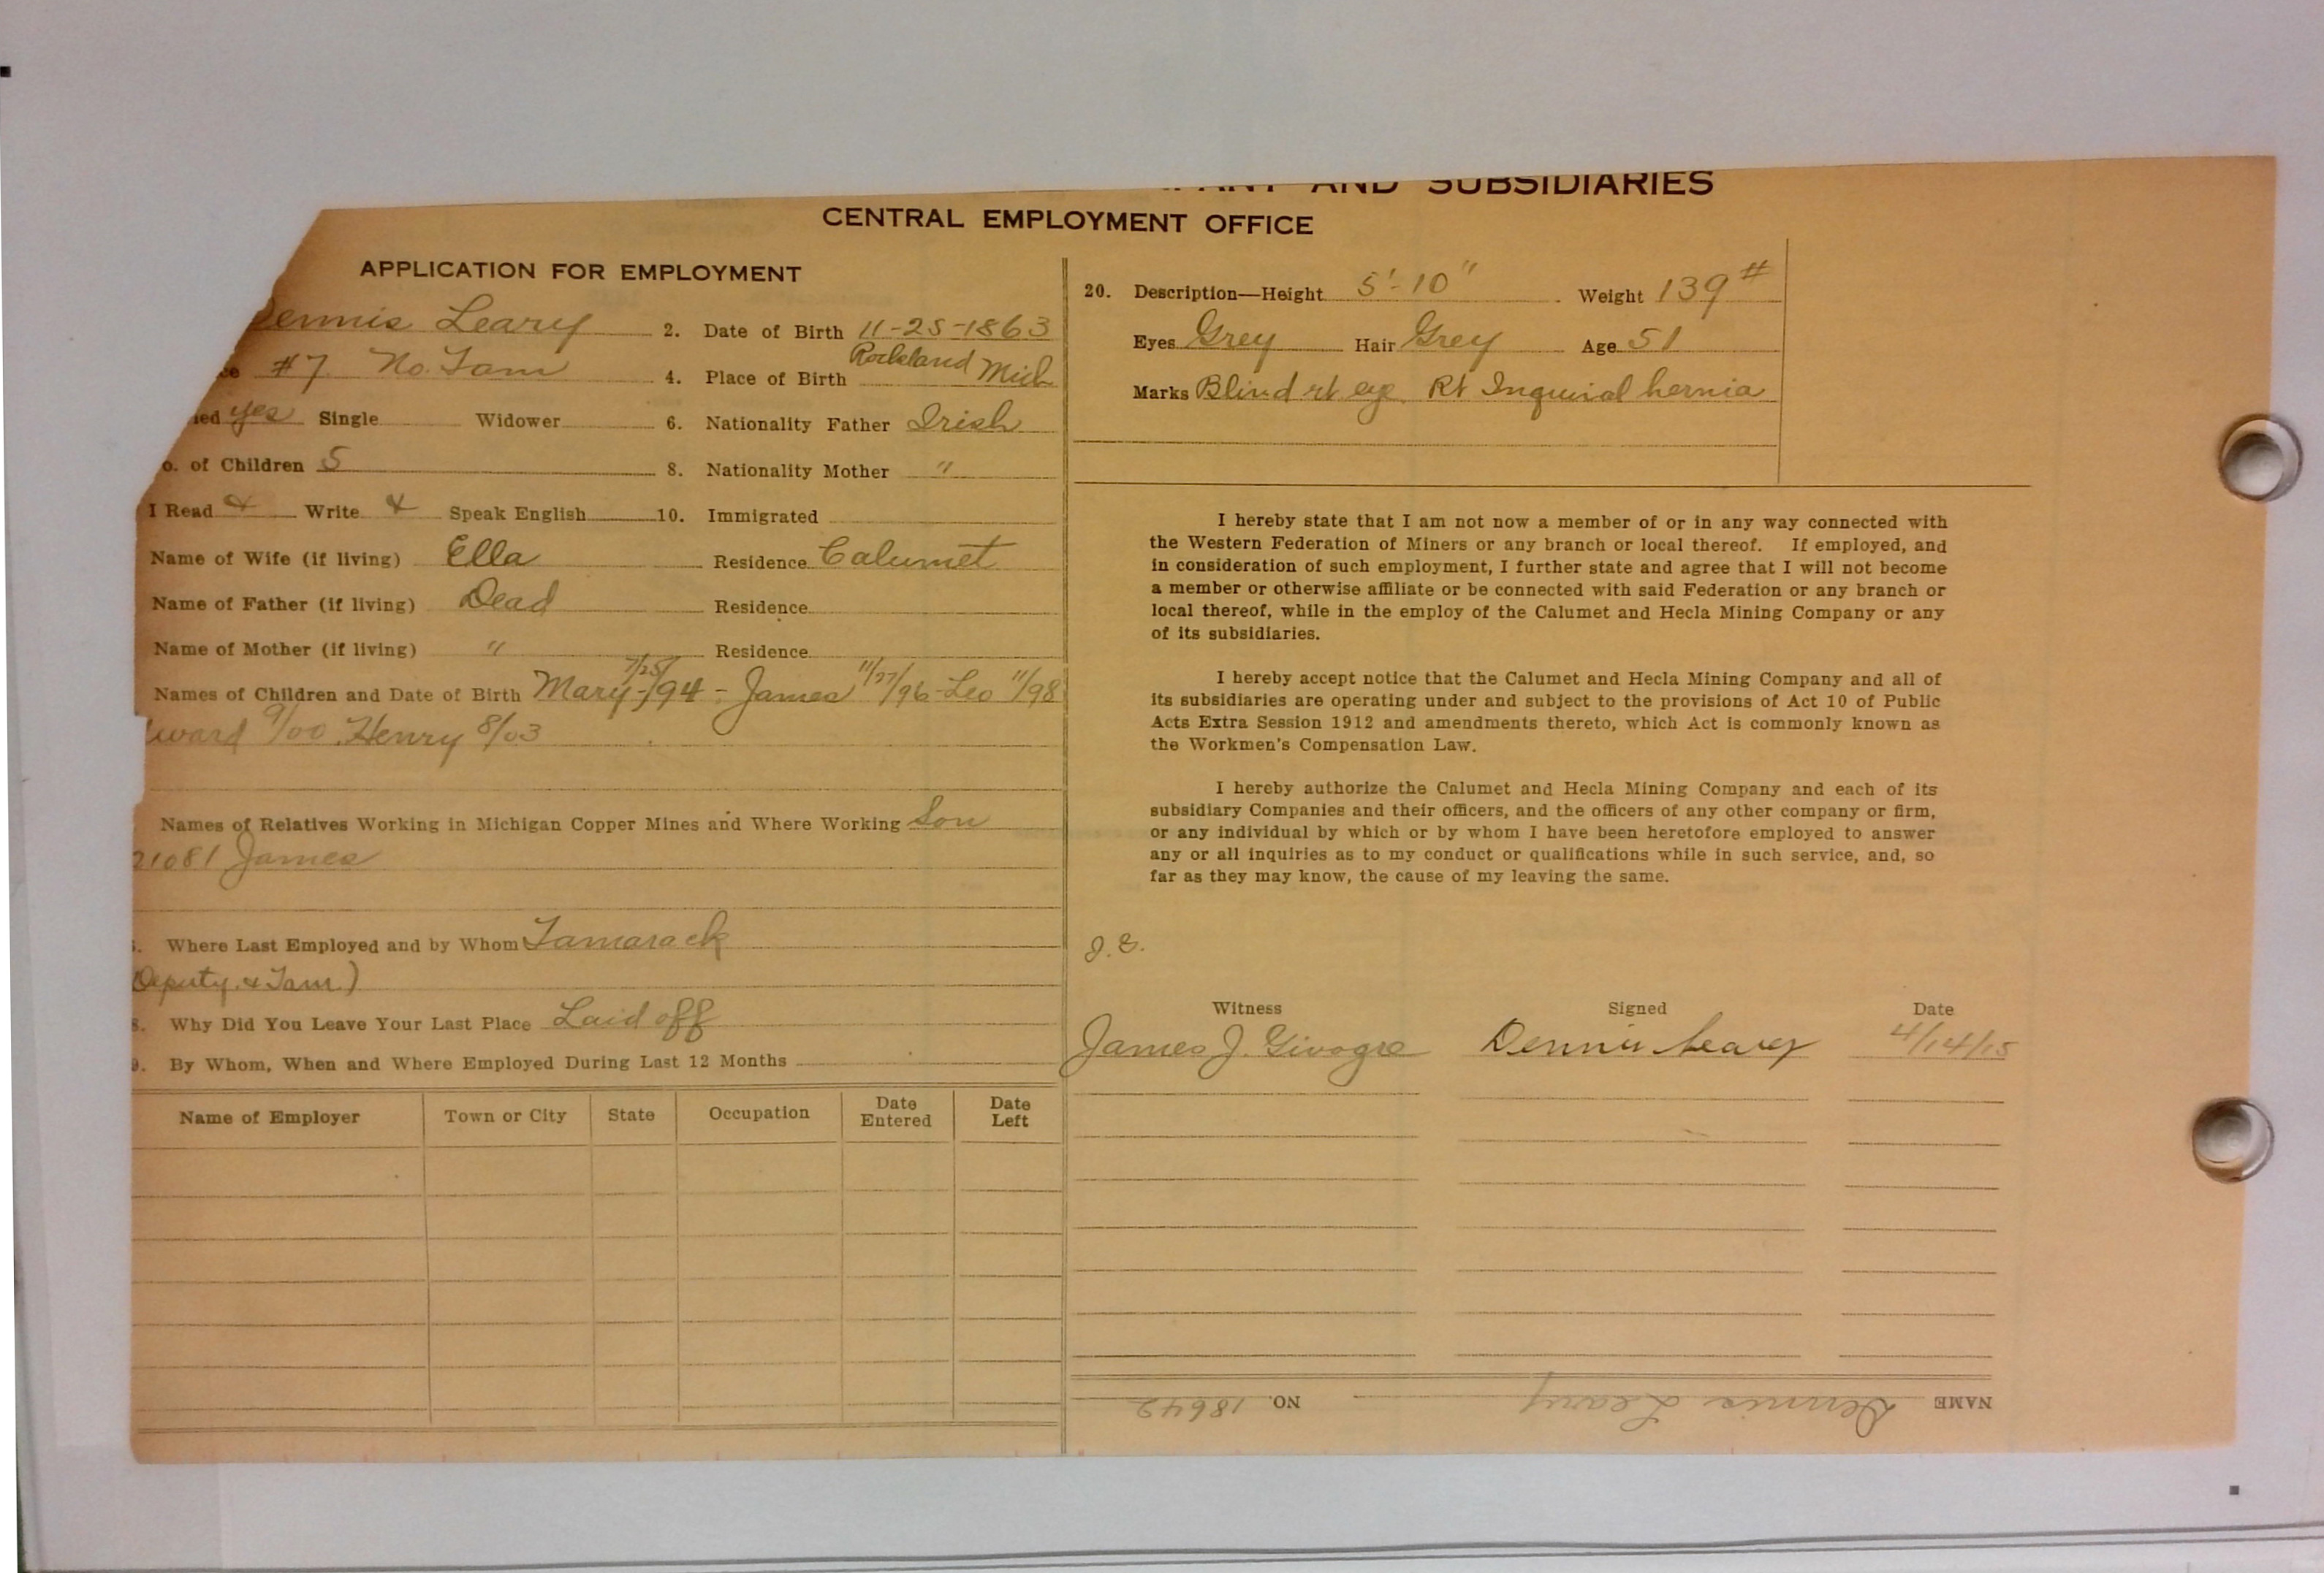 AND SUBSIDIARIES
CENTRAL EMPLOYMENT OFFICE
APPLICATION FOR EMPLOYMENT
Dennis Leary 2. Date of Birth 11-25-1863
#7 No. Tam 4. Place of Birth Rockland Mich
ied yes Single Widower 6. Nationality Father Irish
o. of Children 5 8. Nationality Mother "
I Read & Write & Speak English 10. Immigrated
Name of Wife (if living) Ella Residence Calumet
Name of Father (if living) Dead Residence
Name of Mother (if living) " Residence
Names of Children and Date of Birth Mary - 7/25/94 - James 11/27/96 - Leo 11/98
ward 9/00 Henry 8/03
Names of Relatives Working in Michigan Copper Mines and Where Working Son
21081 James
Where Last Employed and by Whom Tamarack
Deputy & Tam.)
8. Why Did You Leave Your Last Place Laid off
9. By Whom, When and Where Employed During Last 12 Months
Name of Employer Town or City State Occupation Date Entered Date Left
20. Description—Height 5'-10" Weight 139#
Eyes Grey Hair Grey Age 51
Marks Blind rt eye Rt Inquinal hernia
I hereby state that I am not now a member of or in any way connected with
the Western Federation of Miners or any branch or local thereof. If employed, and
in consideration of such employment, I further state and agree that I will not become
a member or otherwise affiliate or be connected with said Federation or any branch or
local thereof, while in the employ of the Calumet and Hecla Mining Company or any
of its subsidiaries.
I hereby accept notice that the Calumet and Hecla Mining Company and all of
its subsidiaries are operating under and subject to the provisions of Act 10 of Public
Acts Extra Session 1912 and amendments thereto, which Act is commonly known as
the Workmen's Compensation Law.
I hereby authorize the Calumet and Hecla Mining Company and each of its
subsidiary Companies and their officers, and the officers of any other company or firm,
or any individual by which or by whom I have been heretofore employed to answer
any or all inquiries as to my conduct or qualifications while in such service, and, so
far as they may know, the cause of my leaving the same.
Witness Signed Date
James J. Dennis Leary 4/14/15
NAME Dennis Leary NO. 18642